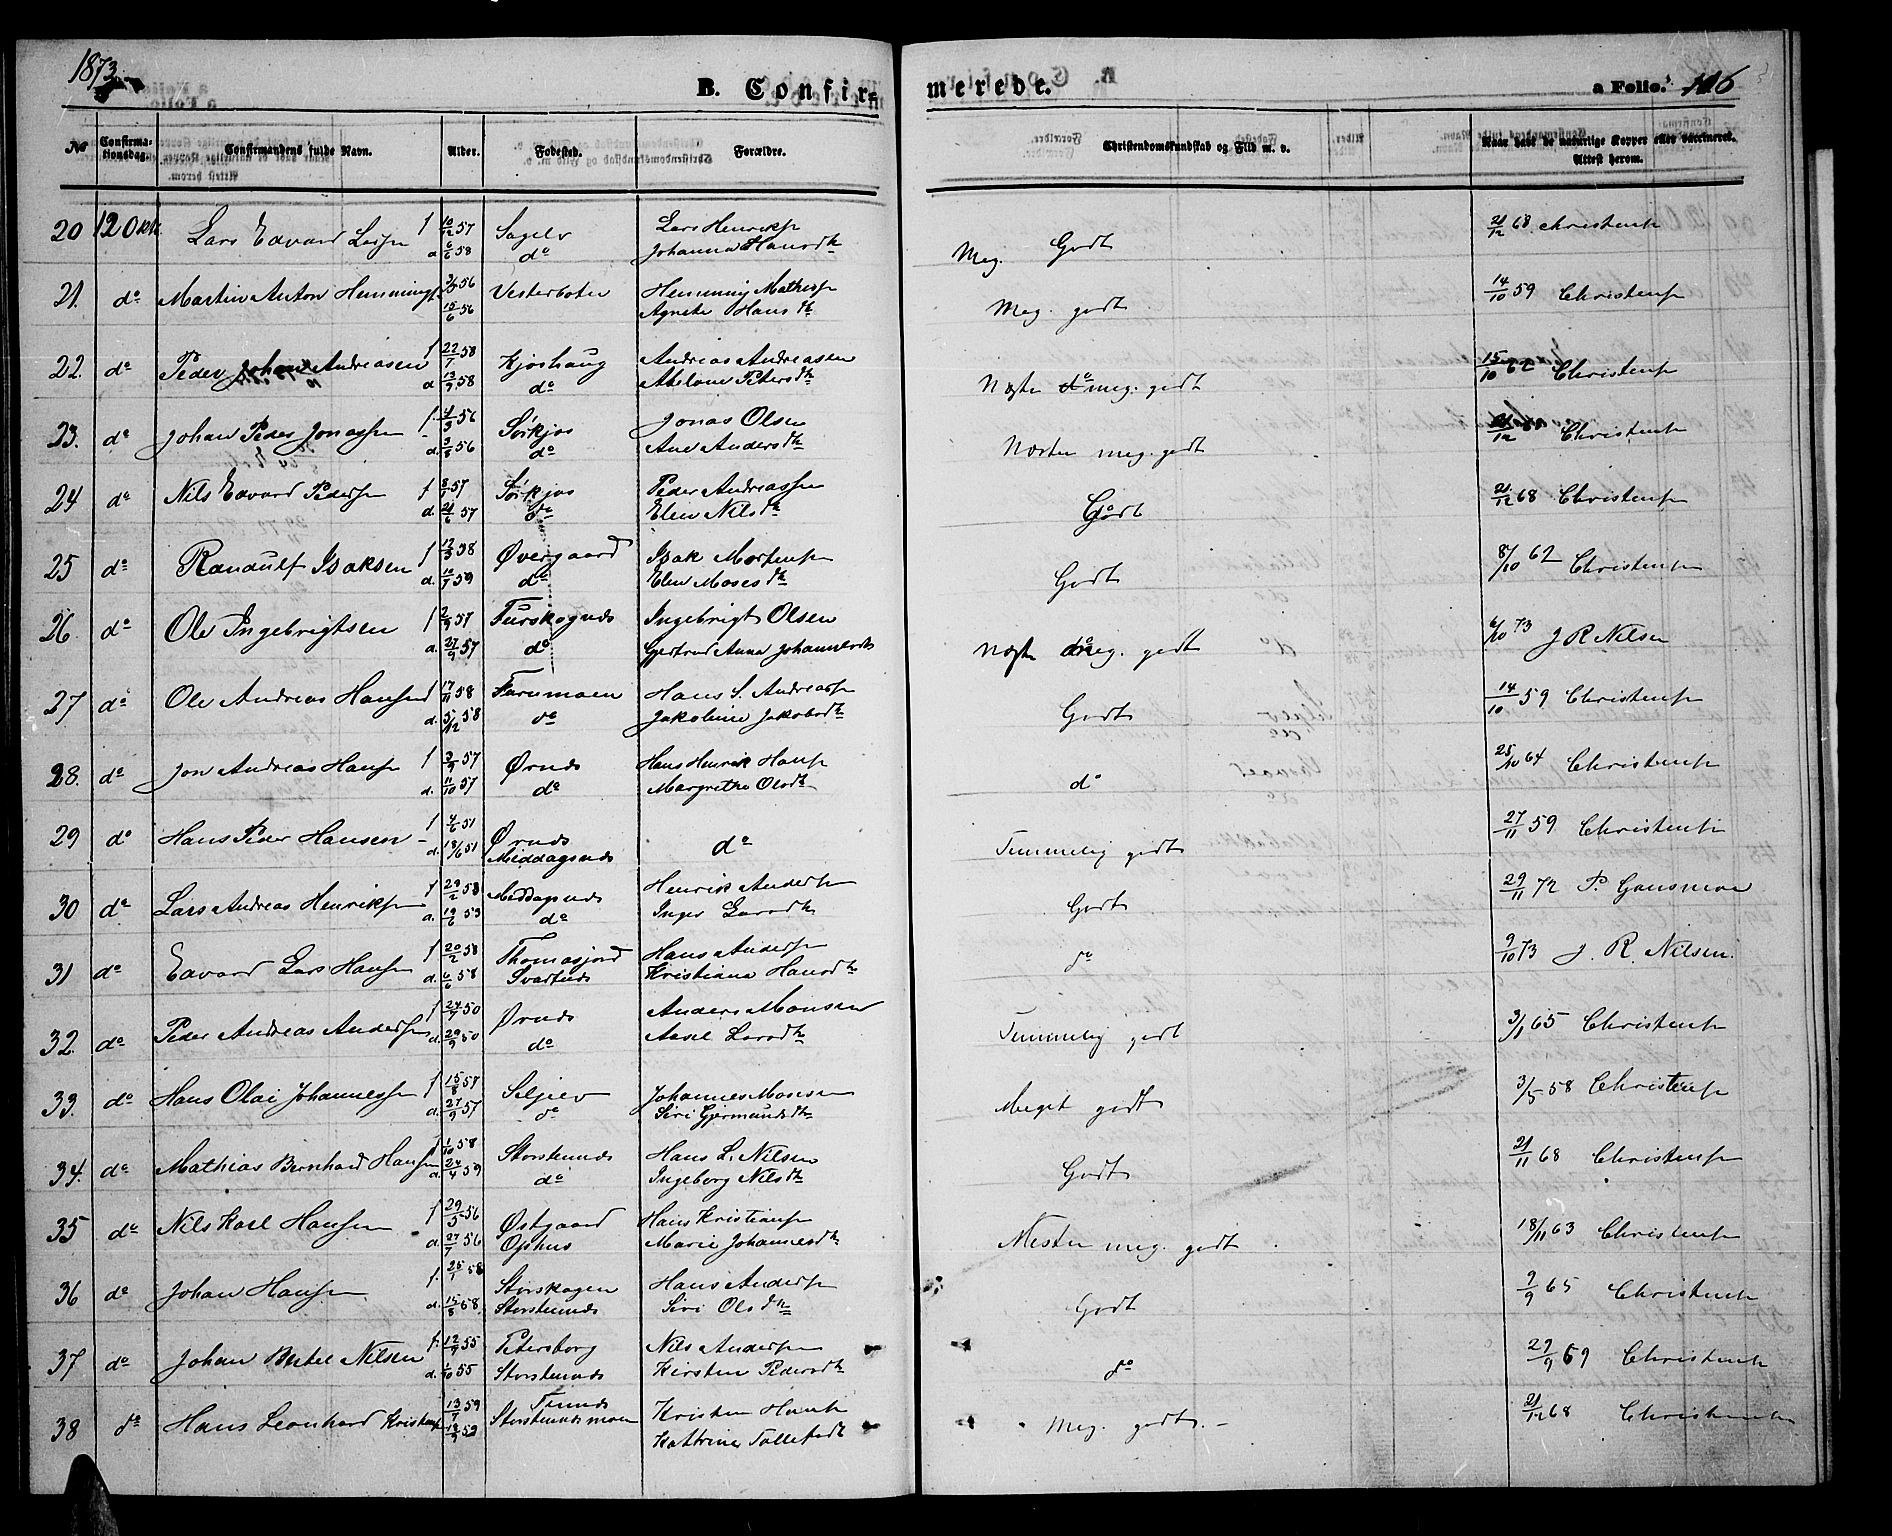 1873.
B. Confir-
merede.
a Folio. 116
No
Confirma-
tionsdag.
Confirmandens fulde Navn.
Alder.
Fødested.
Forældre.
Christendomskundskab og Flid m. v.
Naar havt de naturlige Kopper eller vaccineret.
Attest herom.
20 12 Okt. Lars Edvard Larsen f 10/12 57 Sagelv Lars Henriksen Meg. Godt 21/12 68 Christensen
d 6/6 58 do Johanna Hansdtr
21. do Martin Anton Hemmingsen 56 Vesterbotn Hemming Mathisen Meg. godt 14/10 59 Christensen
15/6 56 Agnete Hansdtr
22. do Peder Johan Andreasen f 22/7 58 Kjoshaug Andreas Andreasen Næsten meg. godt 15/10 62 Christensen
d 13/9 58 do Abelone Petersdtr
23. do Johan Peder Jonassen f. 4/3 56 Sørkjos Jonas Olsen Næsten meg. godt 21/12 Christensen
d. 3/8 56 do Ane Andersdtr
24 do Nils Edvard Pedersen f 8/1 57 Sørkjos Peder Andreassen Godt 21/12 68 Christensen
d. 21/6 57 do Elen Nilsdtr
25 do Randulf Isaksen f 12/3 58 Øvergaard Isak Mortensen Godt 8/10 62 Christensen
d. 10/7 59 do Elen Mosesdtr
26. do Ole Ingebrigtsen f 2/9 57 Furskognes Ingebrigt Olsen Næste meg. godt 6/10 73 J R Nilsen
d. 27/9 57 do Gjertrud Anna Johannesdtr
27 do Ole Andreas Hansen f 17/11 58 Furumoen Hans S. Andreassen Godt 14/10 59 Christensen
d. 5/12 58 do Jakobine Jakobsdtr
28. do Jon Andreas Hansen f 3/9 57 Ørnes Hans Henrik Hansen do 25/10 64 Christensen
d. 11/10 57 do Margrethe Olsdtr
29 do Hans Peder Hansen f 4/6 51 Ørnes do Temmelig godt 27/11 59 Christensen
d. 18/6 51 Middagsnes
30 do Lars Andreas Henriksen f 29/2 58 Middagsnes Henrik Andersen Godt 29/11 72 P. Gausmoe
d. 19/6 53 do Inger Larsdtr
31 do Edvard Lars Hansen f 20/2 58 Thomasjord Hans Andersen do 9/10 73 J. R. Nilsen.
d. 6/6 58 Svartnes Kristiana Hansdtr
32. do Peder Andreas Andersen f 24/7 50 Ørnes Anders Monsen Temmelig godt 3/1 65 Christensen
d. 29/9 50 do Aasel Larsdtr
33. do Hans Olai Johannessen f 15/8 57 Seljelv Johannes Mosesen Meget godt 3/5 58 Christensen
d. 27/9 57 do Siri Gjermundsdtr
34. do Mathias Bernhard Hansen f 1/10 58 Storstennes Hans L. Nilsen Godt 21/11 68 Christensen
d. 24/4 59 do Ingeborg Nilsdtr
35 do Nils Karl Hansen f 29/5 56 Østgaard Hans Kristiansen Nesten meg. godt 18/11 63 Christensen
d. 27/7 56 Ophus Marie Johannesdtr
36 do Johan Hansen f. 25/1 58 Storskogen Hans Andersen Godt 9/9 65 Christensen
d. 15/8 58 Storstennes Siri Olsdtr
37 do Johan Bertel Nilsen f. 12/9 55 Petersborg Nils Andersen do 29/9 69 Christensen
d. 1/10 55 Storstennes Kirsten Pedersdtr
38 do Hans Leonhard Kristensen 13/7 59 Storstennesmoen Kristen Hansen Meg. godt. 21/12 68 Christensen
18/9 59 Kathrine Tollefsdtr